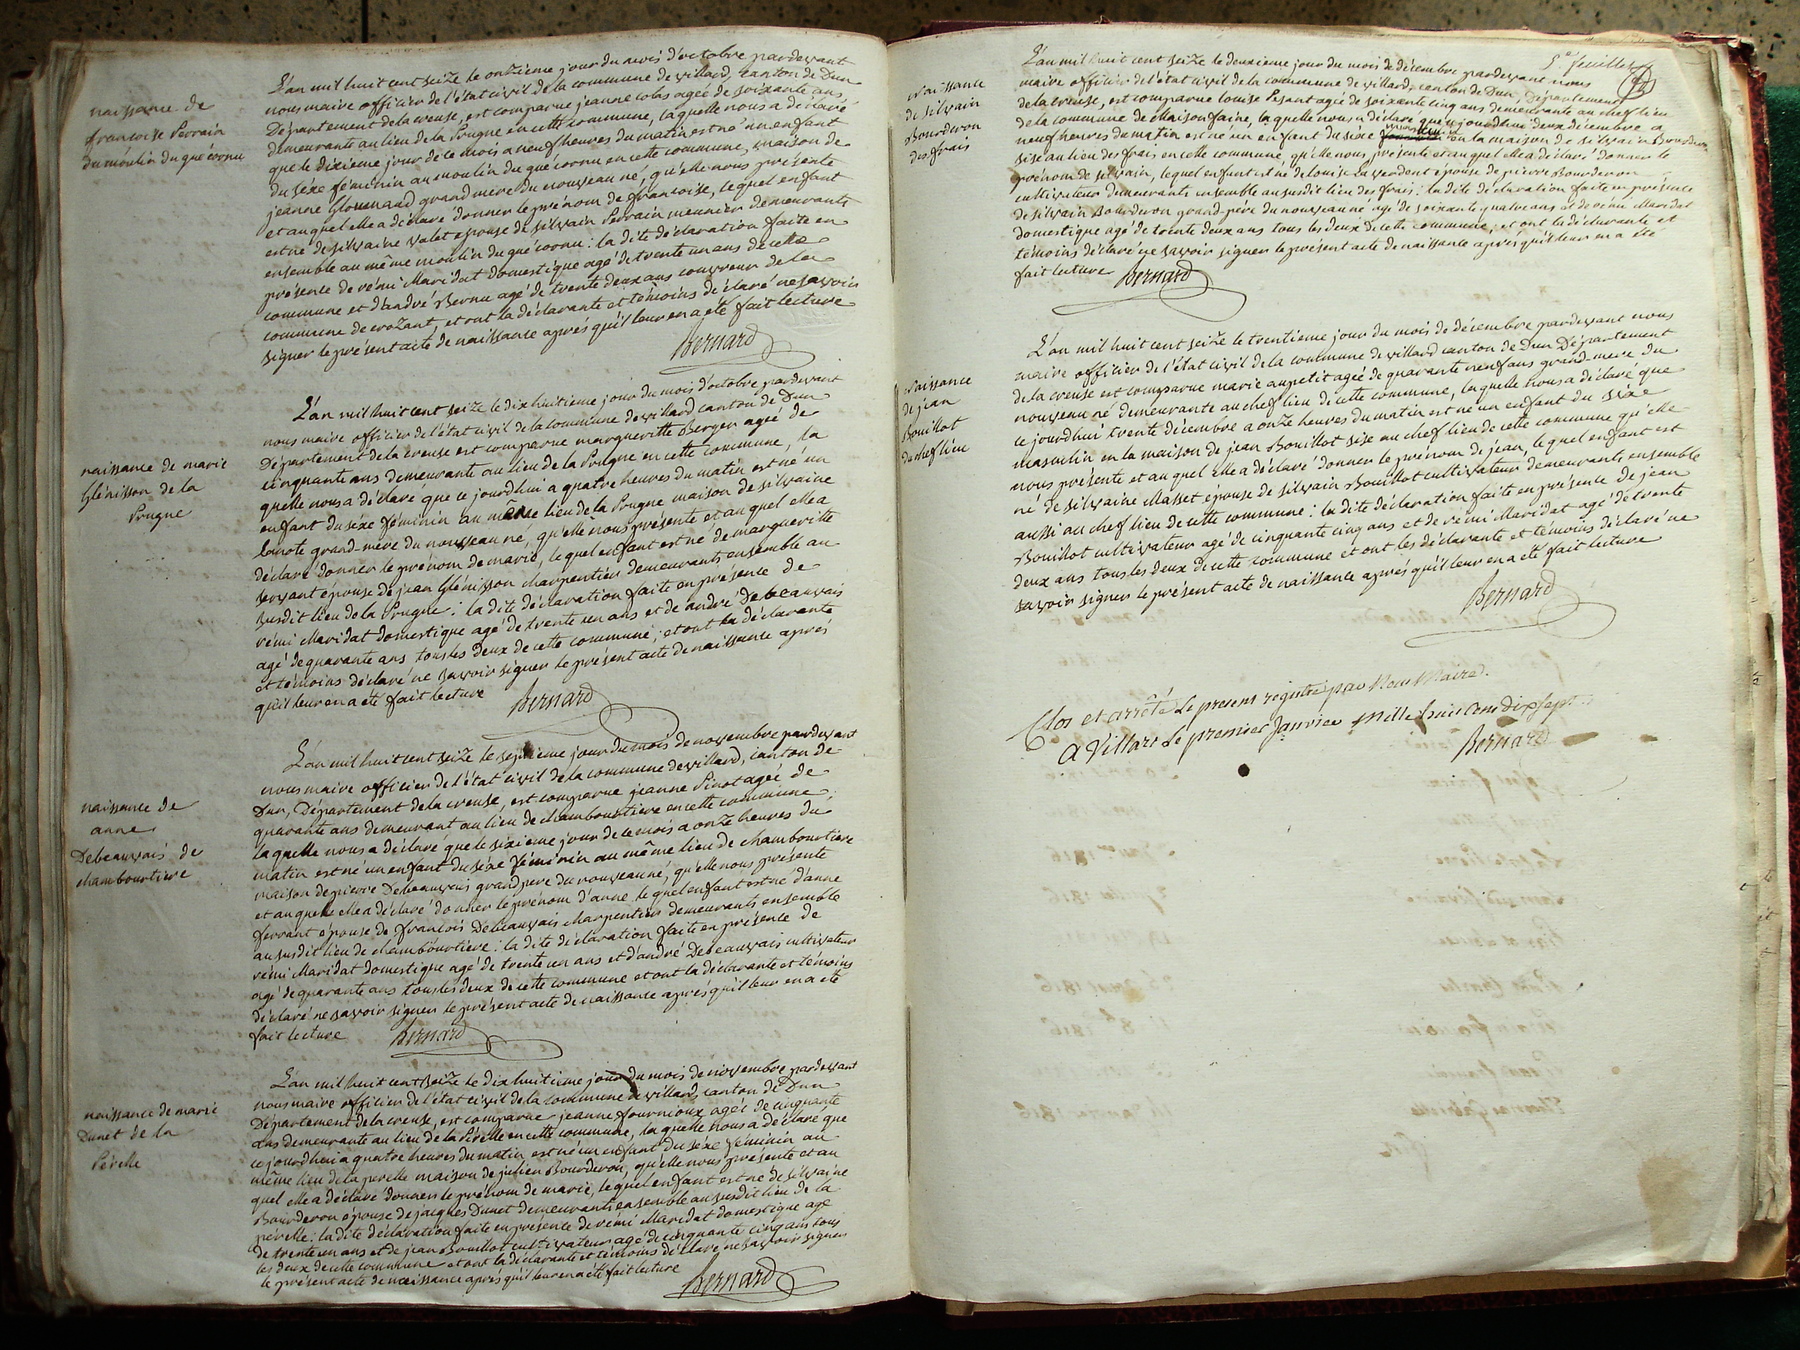 naissance de
francoise Perrain
du moulin du que cornu
L'an mil huit cent seize le onzieme jour du mois d'octobre pardevant
nous maire officier de l'état civil de la commune de villard canton de Dun
Département de la creuse, est comparue jeanne colas agée de soixante ans
demeurante au lieu de la Prugne en cette commune, laquelle nous a déclaré
que le dixieme jour de ce mois a neuf heures du matin est né un enfant
du séxe féminin au moulin du qué cornu en cette commune, maison de
jeanne grand mere du nouveau né, qu'elle nous présente
et auquel elle a déclaré donner le prénom de francoise, lequel enfant
est né de silvaine valet epouse de silvain Perrain meunier demeurants
ensemble au même moulin du qué cornu : la dite déclaration faite en
présente de rémi Maridat domestique agé de trente un ans de cette
commune et d'andré Bernu agé de trente deux ans couvreur de la
commune de crozant, et ont la déclarante et témoins déclaré ne savoir
signer le présent acte de naissance après qu'il leur en a été fait lecture
Bernard
naissance de marie
Glénisson de la
Prugne
L'an mil huit cent seize le dix huitieme jour du mois d'octobre pardevant
nous maire officier de l'état civil de la commune de villard canton de Dun
Département de la creuse est comparue margueritte Berger agée de
cinquante ans demeurante au lieu de la Prugne en cette commune, la
quelle nous a déclaré que ce jourdhui a quatre heures du matin est né un
enfant du sexe féminin au même lieu de la Prugne maison de silvaine
grand-mere du nouveau né, qu'elle nous présente et auquel elle a
déclaré donner le prénom de marie, lequel enfant est né de margueritte
épouse de jean Glénisson charpentier demeurants ensemble au
susdit lieu de la Prugne : la dite déclaration faite en présence de
rémi Maridat domestique agé de trente un ans et de andré Debeauvais
agé de quarante ans tous les deux de cette commune ; et ont la déclarante
et témoins déclaré ne savoir signer le présent acte de naissance après
qu'il leur en a été fait lecture Bernard
naissance de
anne
Debeauvais de
chambourtiere
L'an mil huit cent seize le jour du mois de novembre pardevant
nous maire officier de l'état civil de la commune de villard, canton de
Dun, Département de la creuse, est comparue jeanne Pinot agée de
quarante ans demeurant au lieu de chambourtiere en cette commune,
laquelle nous a déclaré que le sixieme jour de ce mois a onze heures du
matin est né un enfant du séxe féminin au même lieu de chambourtiere
maison de pierre Debeauvais grand pere du nouveau né, qu'elle nous présente
et auquel elle a déclaré donner le prénom d'anne, lequel enfant est né d'anne
ferrant épouse de francois Debeauvais charpentier demeurants ensemble
au susdit lieu de chambourtiere : la dite déclaration faite en présence de
rémi Maridat domestique agé de trente un ans et d'andré Debeauvais cultivateur
agé de quarante ans tous les deux de cette commune et ont la déclarante et témoins
déclaré ne savoir signer le présent acte de naissance après qu'il leur en a été
fait lecture Bernard
naissance de marie
Dunet de la
Pérelle
L'an mil huit cent seize le dix huitieme jour du mois de novembre pardevant
nous maire officier de l'état civil de la commune de villard canton de Dun
Département de la creuse, est comparue jeanne fournioux agée de cinquante
ans demeurante au lieu de la Pérelle en cette commune, laquelle nous a déclaré que
ce jourdhui a quatre heures du matin est né un enfant du séxe féminin au
même lieu de la perelle maison de julien Bourderon, qu'elle nous présente et au
quel elle a déclaré donner le prénom de marie, lequel enfant est né de silvaine
Bourderon épouse de jacques Dunet demeurants ensemble au susdit lieu de la
perelle : la dite déclaration faite en présence de rémi Maridat domestique agé
de trente un ans et de jean Bouillot cultivateur agé de cinquante cinq ans tous
les deux de cette commune et ont la déclarante et témoins déclaré ne savoir signer
le présent acte de naissance après qu'il leur en a été fait lecture
Bernard
feuillet
naissance
de silvain
Bourderon
des frais
L'an mil huit cent seize le deuxieme jour du mois de décembre pardevant nous
maire officier de l'état civil de la commune de villard canton de Dun, Département
de la creuse, est comparue louise Pesant agée de soixante cinq ans demeurante au chef lieu
de la commune de Maisonfaine, laquelle nous a déclaré que ce jourdhui deux décembre a
neuf heures du matin est né un enfant du séxe masculin en la maison de silvain Bourderon
sise au lieu des frais en cette commune, qu'elle nous présente et auquel elle a déclaré donner le
prénom de silvain, lequel enfant est né de louise épouse de pierre Bourderon
cultivateur demeurants ensemble au susdit lieu des frais : la dite déclaration faite en présence
de silvain Bourderon grand-père du nouveau né agé de soixante quatre ans et de rémi Maridat
domestique agé de trente deux ans tous les deux de cette commune, et ont la déclarante et
témoins déclaré ne savoir signer le présent acte de naissance après qu'il leur en a été
fait lecture Bernard
naissance
de jean
Bouillot
du chef lieu
L'an mil huit cent seize le trentieme jour du mois de décembre pardevant nous
maire officier de l'état civil de la commune de villard canton de Dun Département
de la creuse est comparue marie aupetit agée de quarante neuf ans grand-mere du
nouveau né demeurante au chef lieu de cette commune, laquelle nous a déclaré que
ce jourdhui trente décembre a onze heures du matin est né un enfant du séxe
masculin en la maison de jean Bouillot sise au chef lieu de cette commune qu'elle
nous présente et auquel elle a déclaré donner le prénom de jean, lequel enfant est
né de silvaine Masset épouse de silvain Bouillot cultivateur demeurants ensemble
aussi au chef lieu de cette commune : la dite déclaration faite en présence de jean
Bouillot cultivateur agé de cinquante cinq ans et de rémi Maridat agé de trente
deux ans tous les deux de cette commune et ont les déclarante et témoins déclaré ne
savoir signer le présent acte de naissance après qu'il leur en a été fait lecture
Bernard
Clos et arrêté le present registre par Nous Maire
A Villard le premier Janvier Mille huit Cent dix sept
Bernard